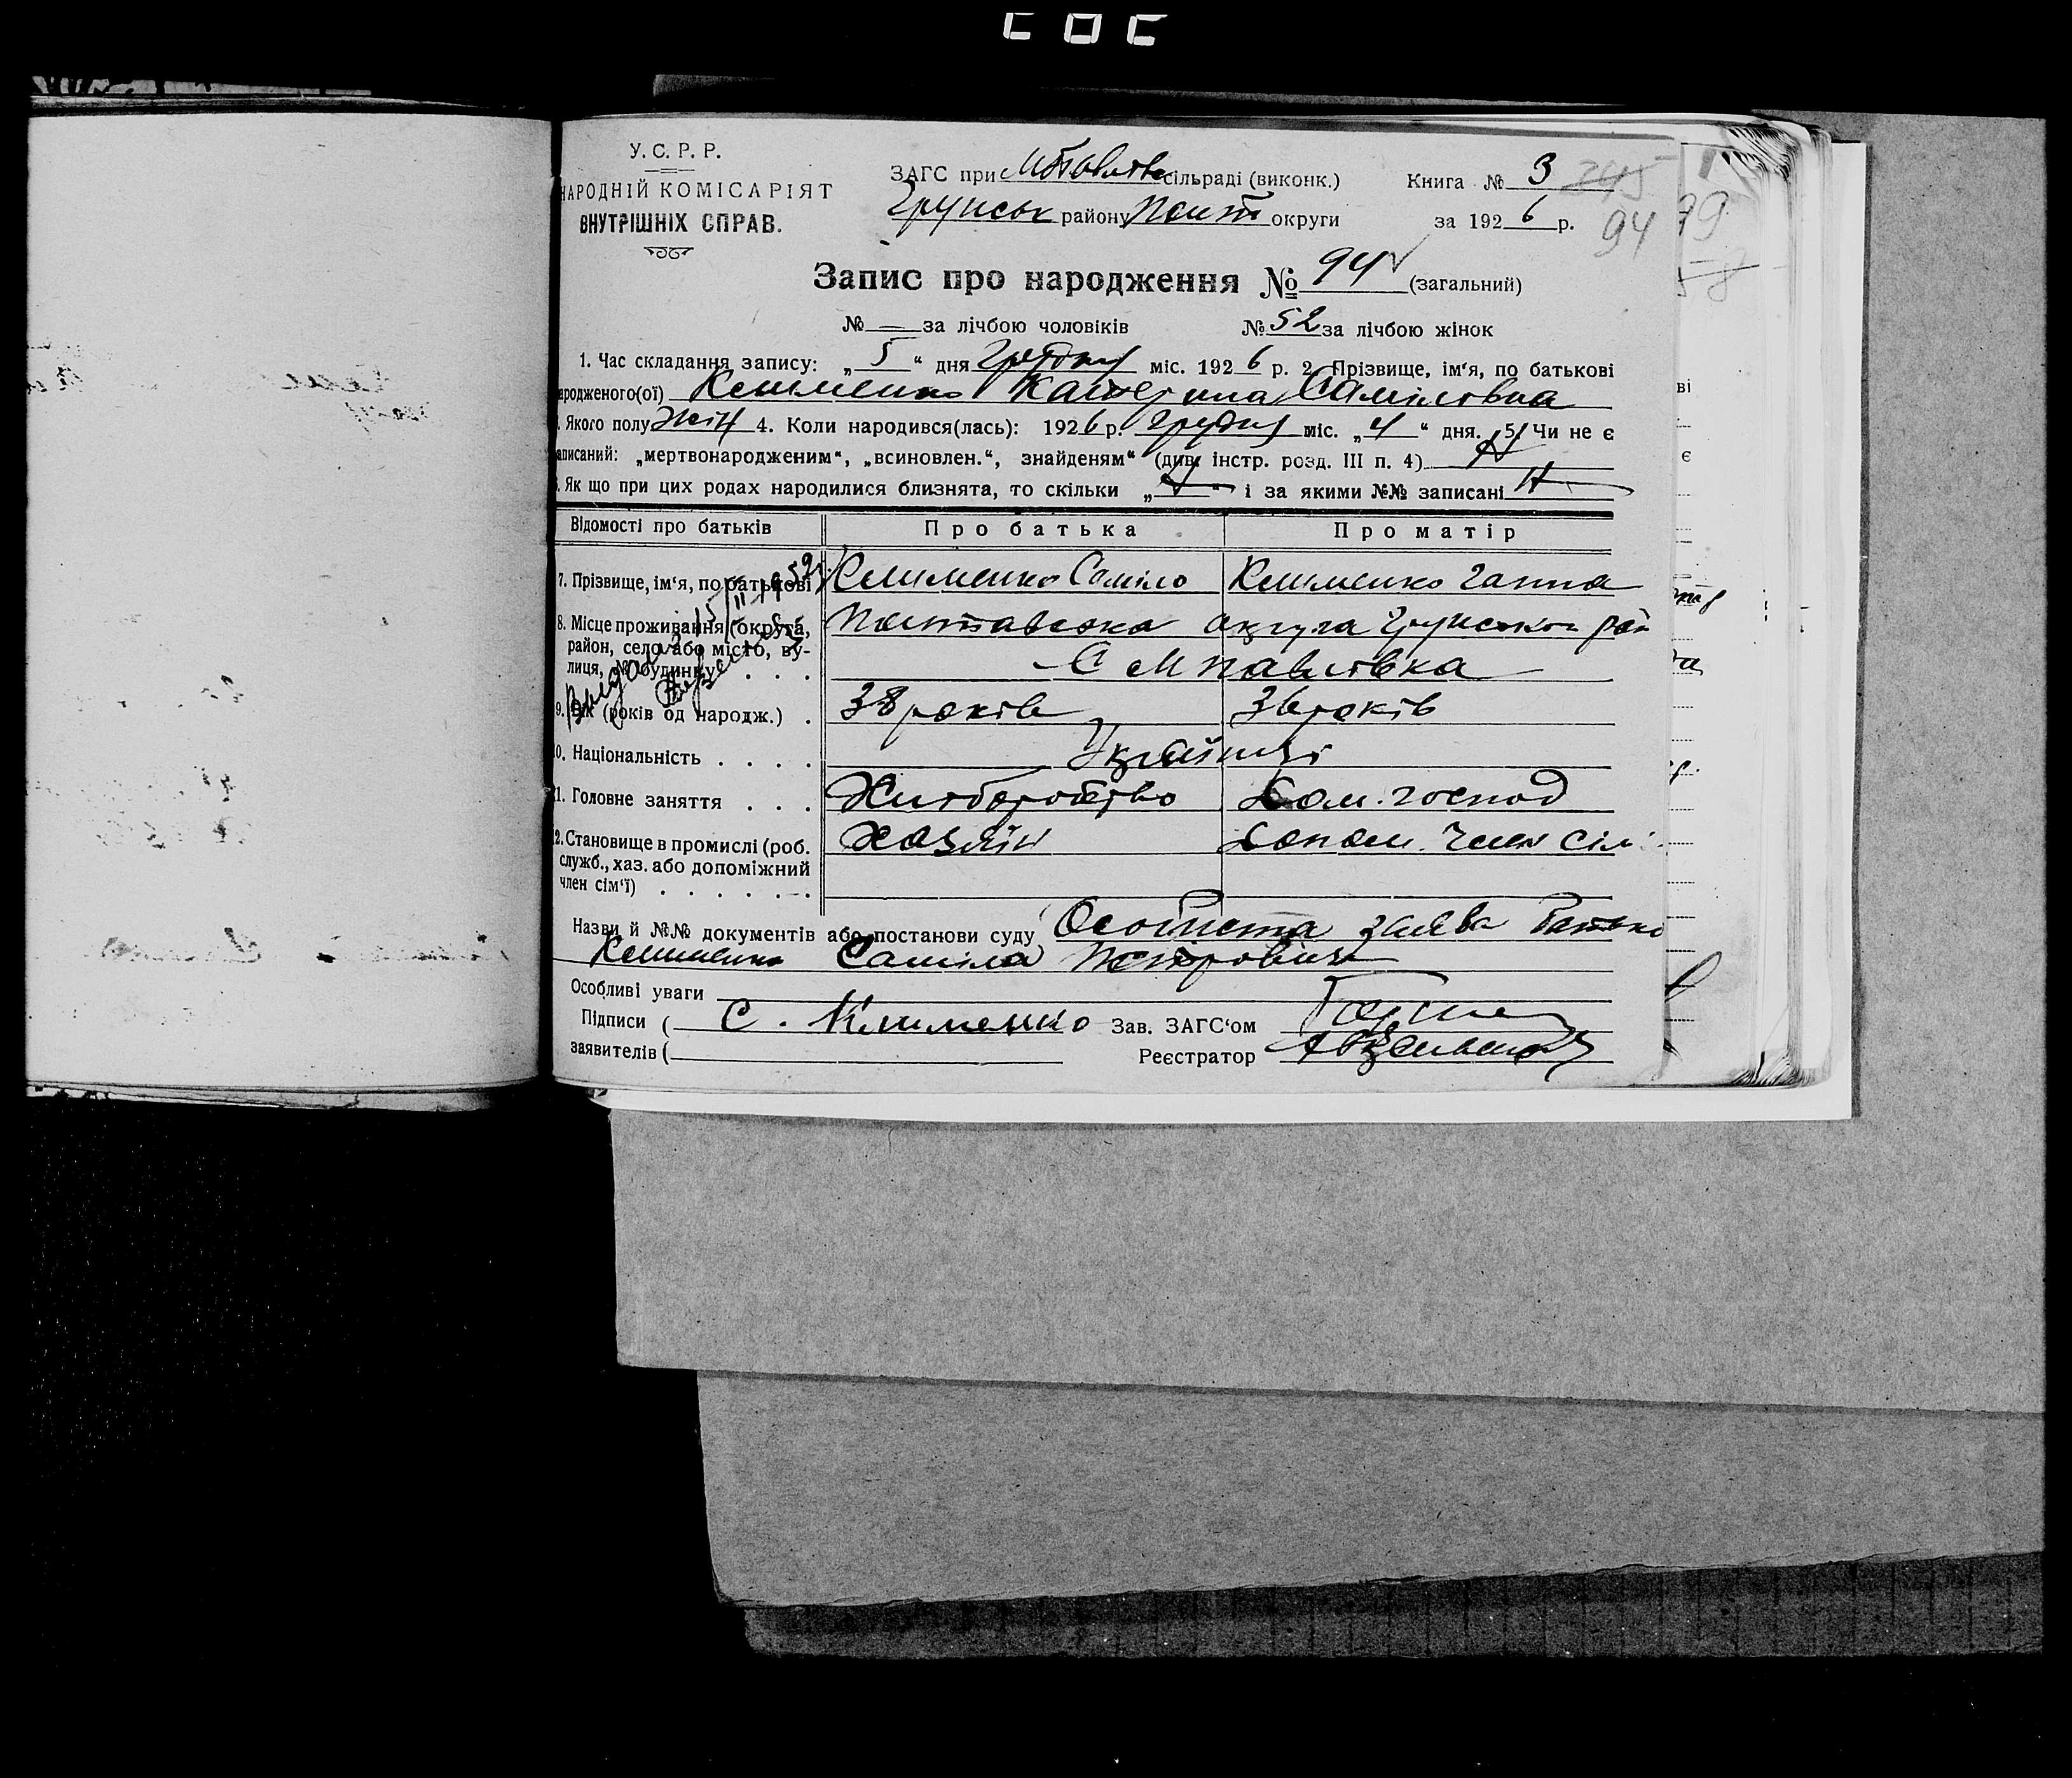 У. С. Р. Р.
НАРОДНІЙ КОМІСАРІЯТ
ВНУТРІШНІХ СПРАВ.
ЗАГС при сільраді (виконк.) Книга № 3
Грунськ району Полт округи за 1926 р. 94
Запис про народження № 94 (загальний)
№ — за лічбою чоловіків № 52 за лічбою жінок
1. Час складання запису: „5“ дня Грудня міс. 1926 р. 2. Прізвище, ім'я, по батькові
народженого(ої) Клименко Катерина Саміловна
Якого полу Жін 4. Коли народився(лась): 1926 р. Грудня міс. „4“ дня. 5. Чи не є
записаний: „мертвонародженим“, „всиновлен.“, знайденям“ (див. інстр. розд. III п. 4)
Як що при цих родах народилися близнята, то скільки „ “ і за якими №№ записані
Відомості про батьків Про батька Про матір
7. Прізвище, ім'я, по батькові Клименко Саміло Клименко Ганна
8. Місце проживання (округа, район, село або місто, вулиця, № будинку) . . . Полтавська округа Грунської рай
С М Павлівка
9. Вік (років од народж.) . 38 років 36 років
10. Національність . . . . Українці
11. Головне заняття . . . Хліборобство Дом. господ
12. Становище в промислі (роб. Хазяїн Допом. член сім
служб., хаз. або допоміжний
член сім'ї) . . . . . .
Назви й №№ документів або постанови суду Особиста заява батька
Клименко Саміла Петровича
Особливі уваги
Підписи ( С. Клименко Зав. ЗАГС'ом
заявителів ( Реєстратор